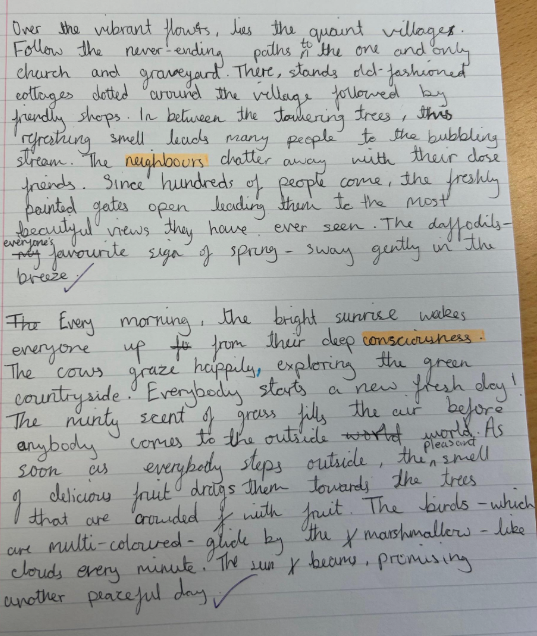 Over the vibrant flowers, lies the quaint villages.
Follow the never-ending paths to the one and only
church and graveyard. There, stands old-fashioned
cottages dotted around the village followed by
friendly shops. In between the towering trees, this
refreshing smell leads many people to the bubbling
stream. The neighbours chatter away with their close
friends. Since hundreds of people come, the freshly
painted gates open leading them to the most
beautiful views they have ever seen. The daffodils-
everyone's
my favourite sign of spring - sway gently in the
breeze.
The Every morning, the bright sunrise wakes
everyone up to from their deep consciousness.
The cows graze happily, exploring the green
countryside. Everybody starts a new fresh day!
The minty scent of grass fills the air before
anybody comes to the outside world world. As
soon as everybody steps outside, the pleasant smell
of delicious fruit drags them towards the trees
that are crowded with fruit. The birds - which
are multi-coloured - glide by the marshmallow - like
clouds every minute. The sun beams, promising
another peaceful day.